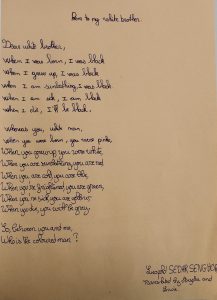 Poem to my white brother
Dear white brother,
when I was born, I was black
when I grew up, I was black
when I am sunbathing, I was black
when I am sick, I am black
when I die, I'll be black.
Whereas you, white man,
when you were born, you were pink,
When you grew up, you were white
When you are sunbathing you are red
When you are cold, you are blue,
When you're frightened you are green,
When you're sick, you are yellow
When you die, you will be gray.
So, between you and me,
Who is the coloured man ?
Léopold SEDAR SENGHOR
Translated by
and